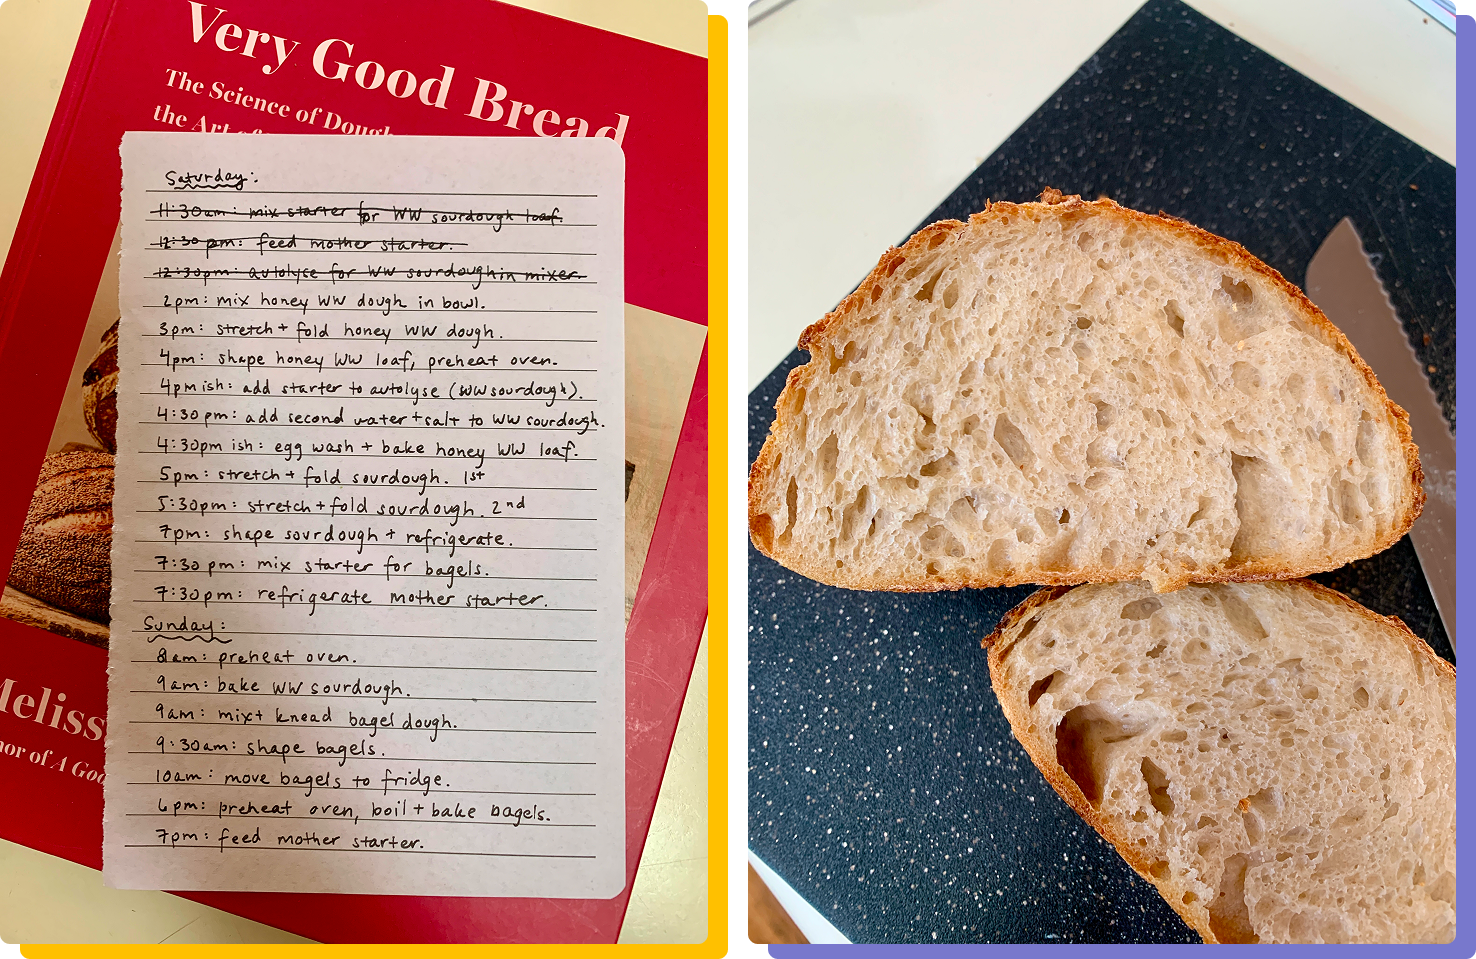 Very Good Bread
The Science of Dough
the Art of
Saturday:
11:30am: mix starter for WW sourdough loaf.
12:30pm: feed mother starter.
12:30pm: autolyse for WW sourdough in mixer.
2pm: mix honey WW dough in bowl.
3pm: stretch + fold honey WW dough.
4pm: shape honey WW loaf, preheat oven.
4pm ish: add starter to autolyse (WW sourdough).
4:30pm: add second water + salt to WW sourdough.
4:30pm ish: egg wash + bake honey WW loaf.
5pm: stretch + fold sourdough. 1st
5:30pm: stretch + fold sourdough. 2nd
7pm: shape sourdough + refrigerate.
7:30pm: mix starter for bagels.
7:30pm: refrigerate mother starter.
Sunday:
8am: preheat oven.
9am: bake WW sourdough.
9am: mix + knead bagel dough.
9:30am: shape bagels.
10am: move bagels to fridge.
6pm: preheat oven, boil + bake bagels.
7pm: feed mother starter.
Meliss
hor of A Goo